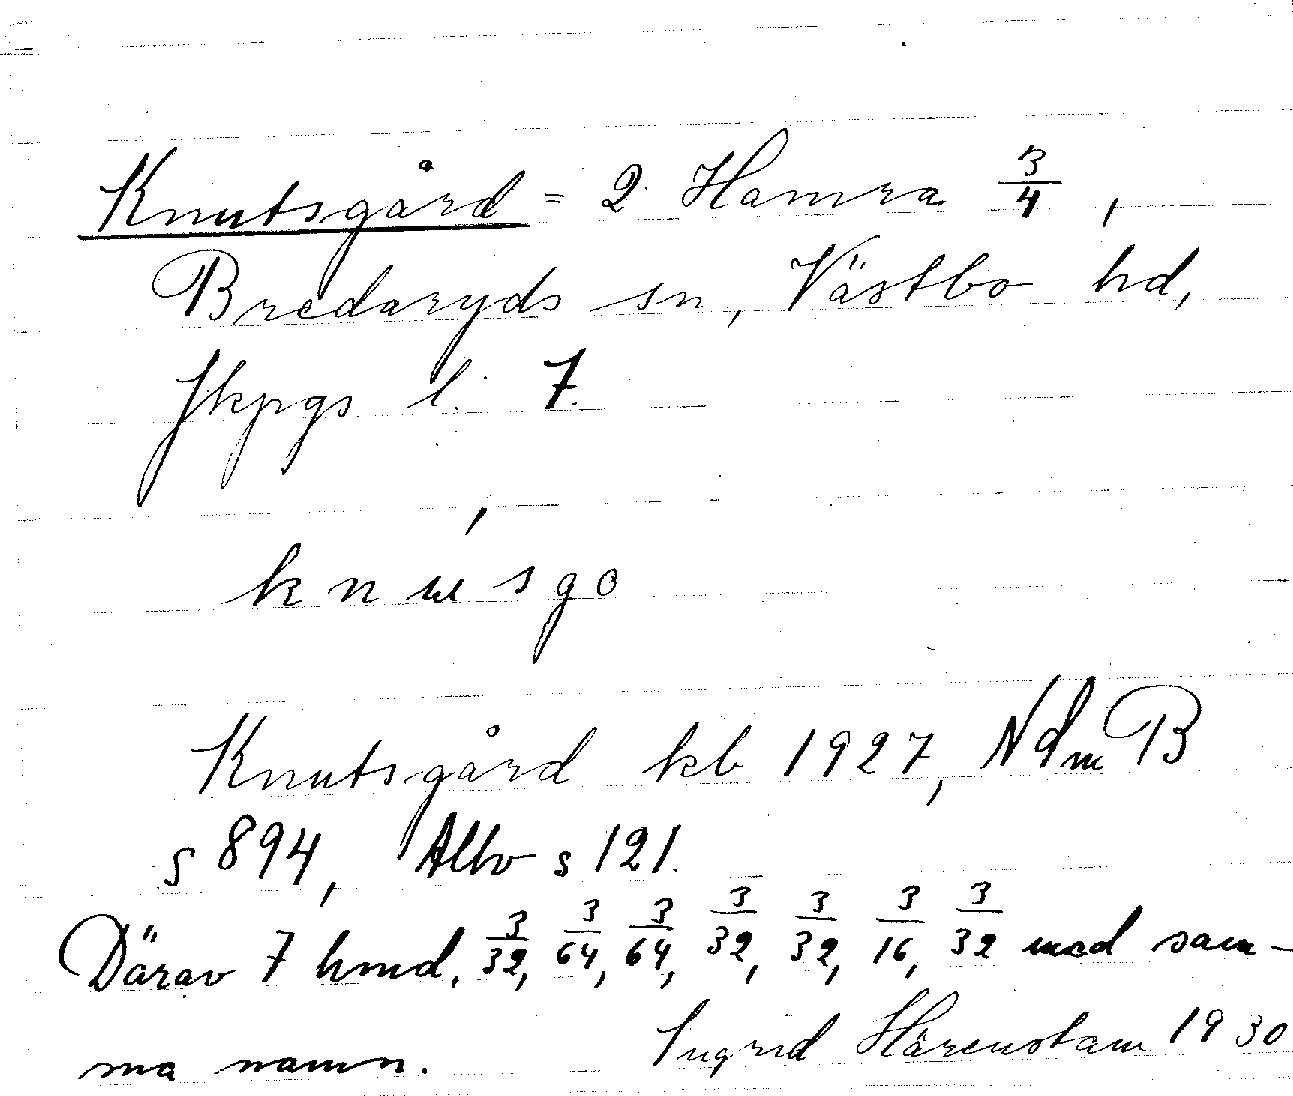 Knutsgård = 2 Hamra 3/4,
Bredaryds sn, Västbo hd,
Jkpgs l. 7.
knu̍sgo
Knutsgård kb 1927, Ndm B
s 894, Allbo s 121.
Därav 7 hmd. 3/32, 3/64, 3/64, 3/32, 3/32, 3/16, 3/32 med sam-
ma namn. Ingrid Härenstam 1930